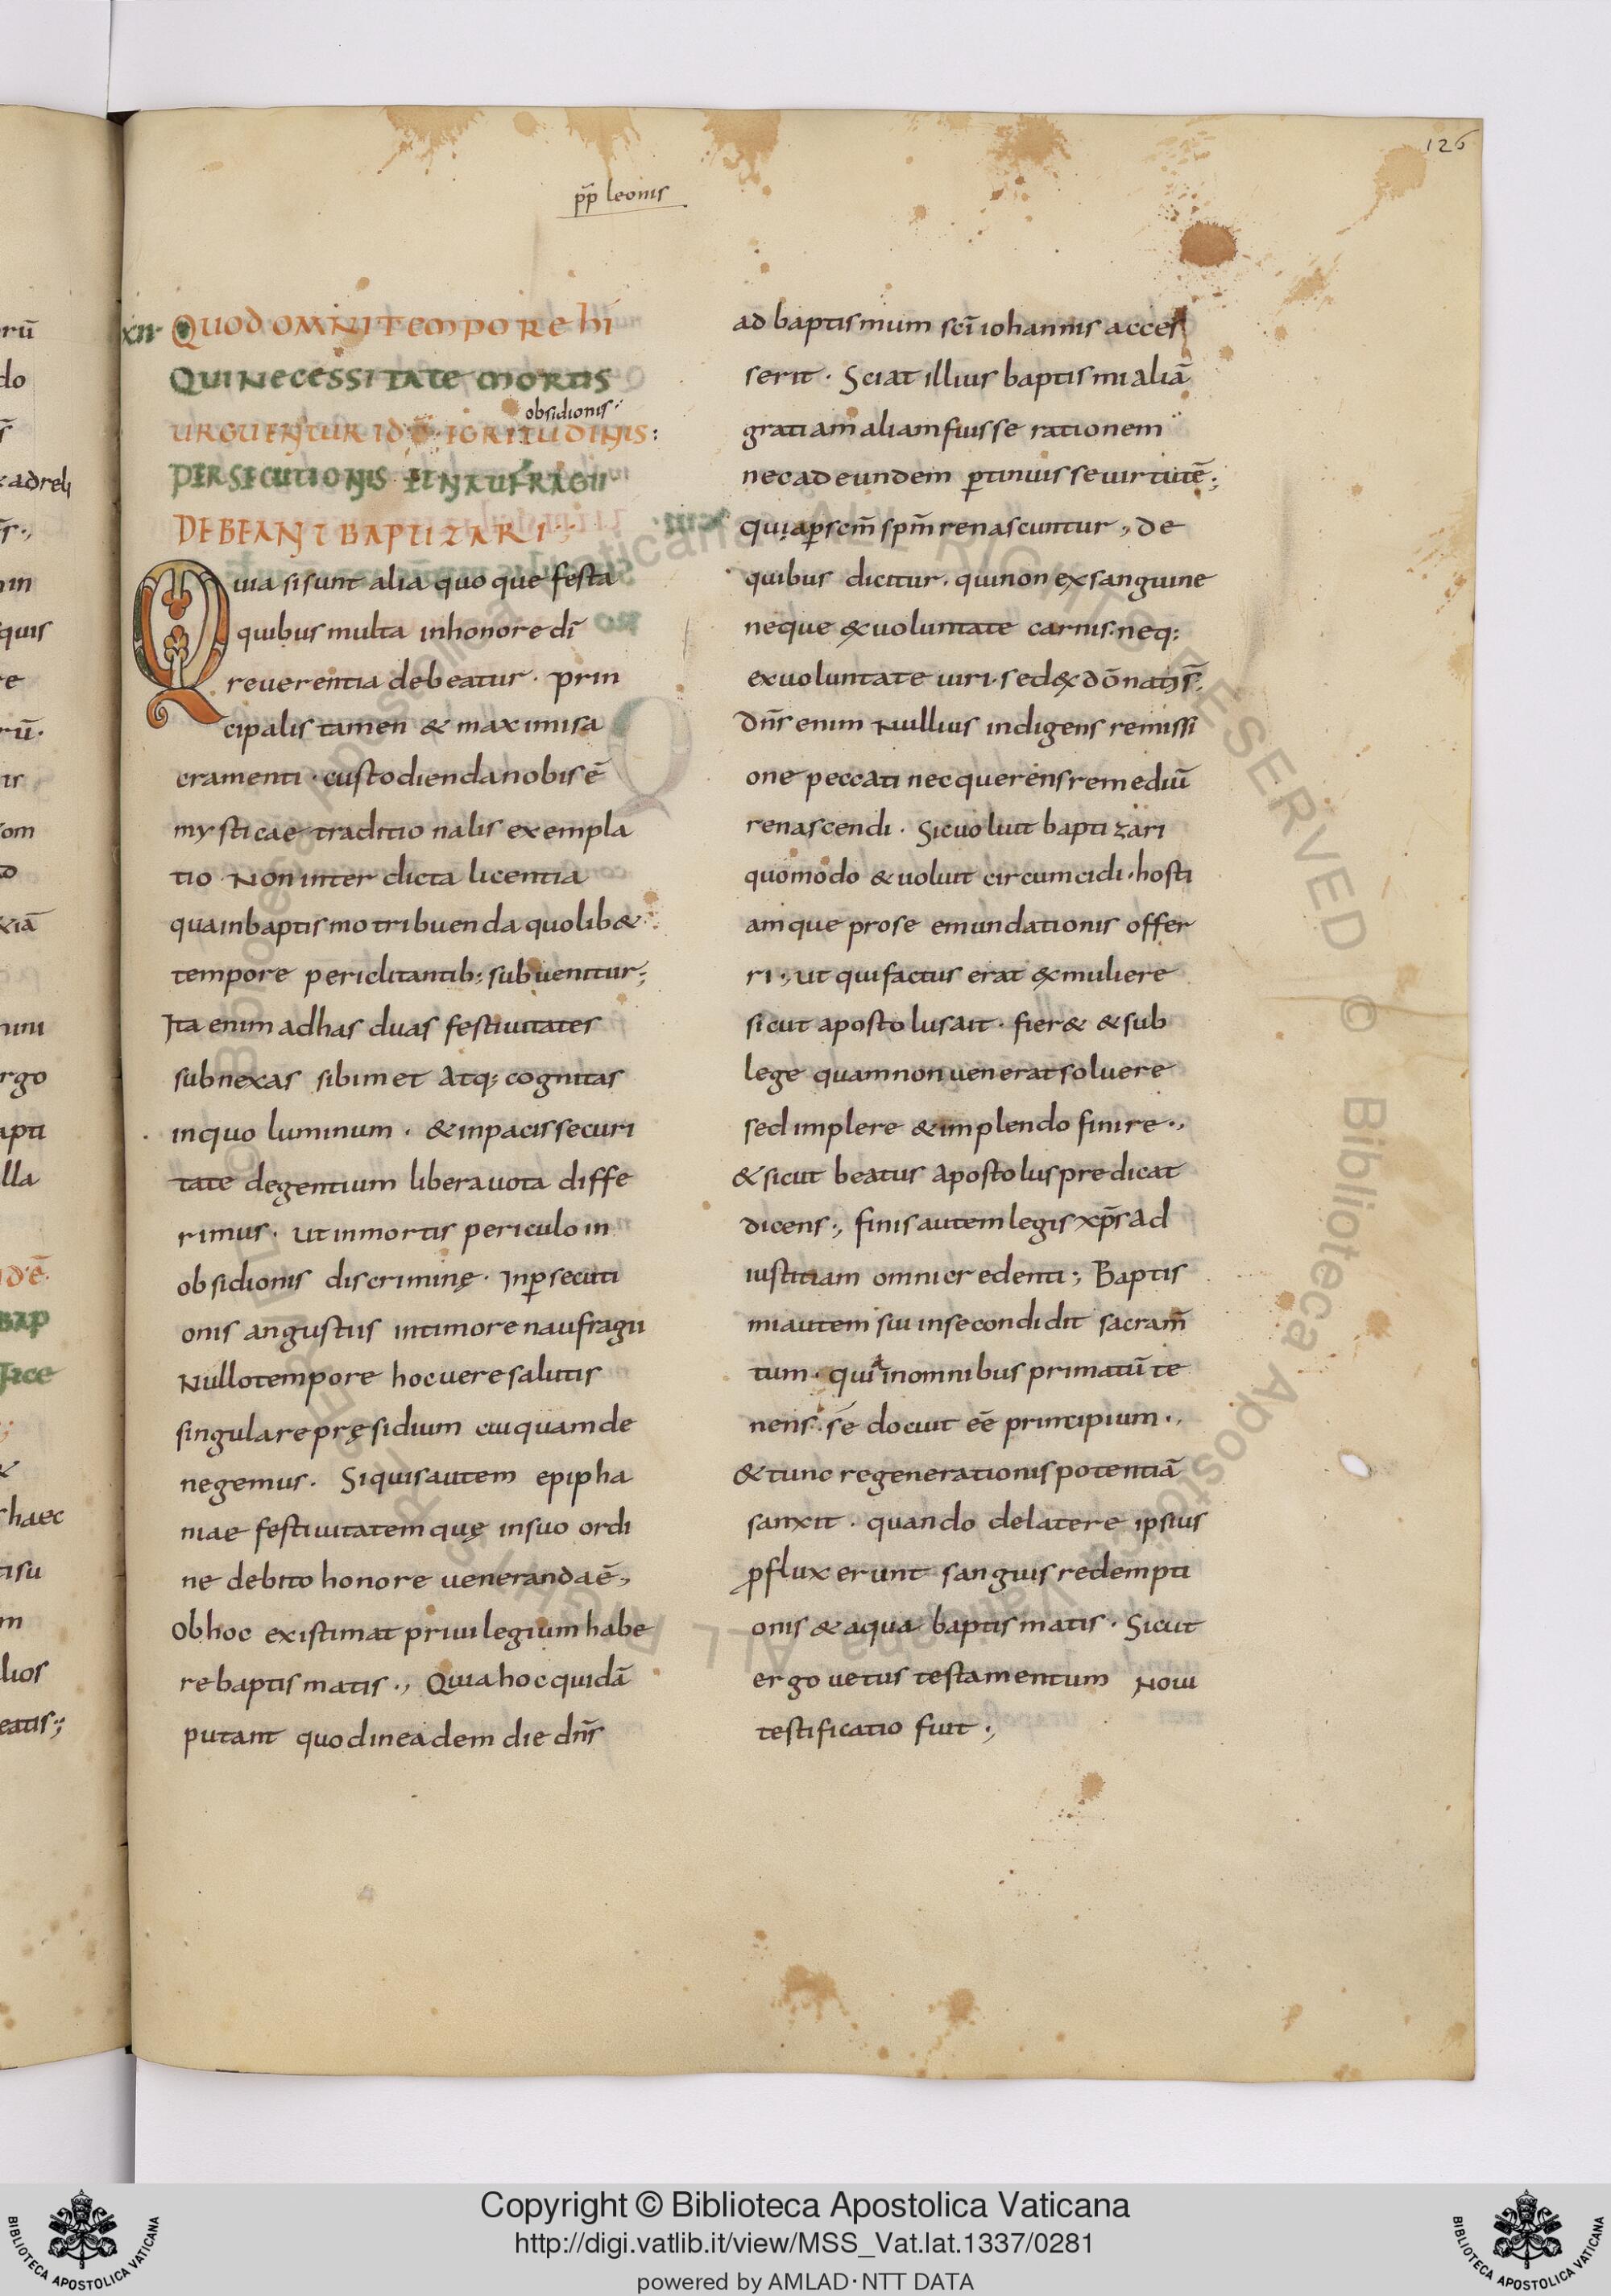 126
p̄p leonis
XII QUOD OMNI TEMPORE HI
QUI NECESSITATE MORTIS
obsidionis
URGUENTUR ID Ē IGRITUDINIS:
PERSECUTIONIS ET NAUFRAGII
DEBEANT BAPTIZARI
Quia si sunt alia quoque festa
quibus multa in honore dī
reuerentia debeatur· prin
cipalis tamen & maximi sa
cramenti· custodienda nobis ē
mysticae traditionalis exempla
tio Non interdicta licentia
qua in baptismo tribuenda quolib&
tempore periclitantib; subuenitur;
Ita enim ad has duas festiuitates
subnexas sibimet Atq; cognitas
in quo luminum· & in pacis securi
tate degentium libera uota diffe
rimus· ut in mortis periculo in
obsidionis discriminę· In ꝑsecuti
onis angustiis in timore naufragii
Nullo tempore hoc uere salutis
singulare pręsidium cuiquam de
negemus· Si quis autem epipha
niae festiuitatem quę in suo ordi
ne debito honore ueneranda ē·,
Ob hoc existimat priuilegium habe
re baptismatis·, Quia hoc quidā
putant quod in eadem die dn̄s
ad baptismum sc̄i iohannis acces
serit· Sciat illius baptismi aliā
gratiam aliam fuisse rationem
nec ad eundem ꝑtinuisse uirtutē·;
qui aꝑ sc̄m sp̄m renascuntur·, de
quibus dicitur· qui non ex sanguine
neque & uoluntate carnis· neq;
ex uoluntate uiri· sed ex dō nati s̄·,
Dn̄s enim Nullius indigens remissi
one peccati nec querens remediū
renascendi· Sic uoluit baptizari
quomodo & uoluit circumcidi· hosti
amque pro se emundationis offer
ri·, ut qui factus erat ex muliere
sicut apostolus ait· fier& & sub
lege quam non uenerat soluere
sed implere & implendo finire·,
& sicut beatus Apostolus predicat
dicens·, finis autem legis xp̄s Ad
iustitiam omni credenti·; Baptis
mi autem sui in se condidit sacram̄
tum· quia in omnibus primatū te
nens· se docuit eē principium·,
& tunc regenerationis potentiā
sanxit· quando de latere ipsius
ꝓfluxerunt sanguis redempti
onis & aqua baptismatis· Sicut
ergo uetus testamentum Noui
testificatio fuit·,
Copyright © Biblioteca Apostolica Vaticana
http://digi.vatlib.it/view/MSS_Vat.lat.1337/0281
powered by AMLAD·NTT DATA
BIBLIOTECA APOSTOLICA VATICANA
BIBLIOTECA APOSTOLICA VATICANA